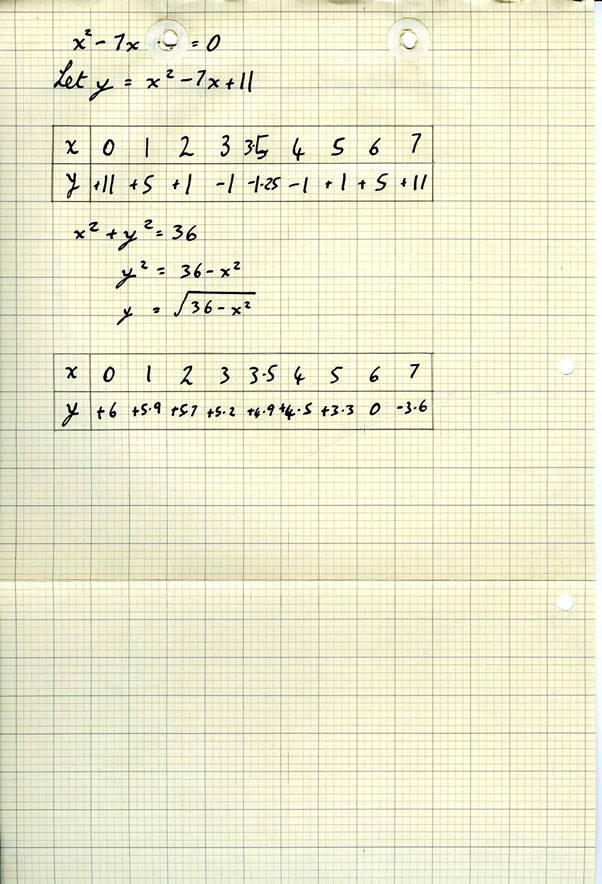 x² - 7x = 0
Let y = x² - 7x + 11
x 0 1 2 3 3.5 4 5 6 7
y +11 +5 +1 -1 -1.25 -1 +1 +5 +11
x² + y² = 36
y² = 36 - x²
y = √36 - x²
x 0 1 2 3 3.5 4 5 6 7
y +6 +5.9 +5.7 +5.2 +4.9 +4.5 +3.3 0 -3.6